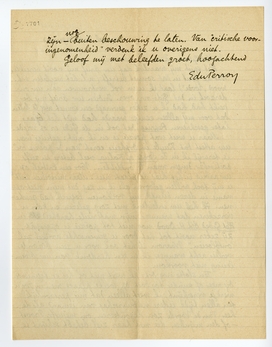 nog
zijn – buiten beschouwing te laten. Van "critische voor-
ingenomenheid" verdenk ik u overigens niet.
Geloof mij met beleefden groet, hoogachtend
EduPerron